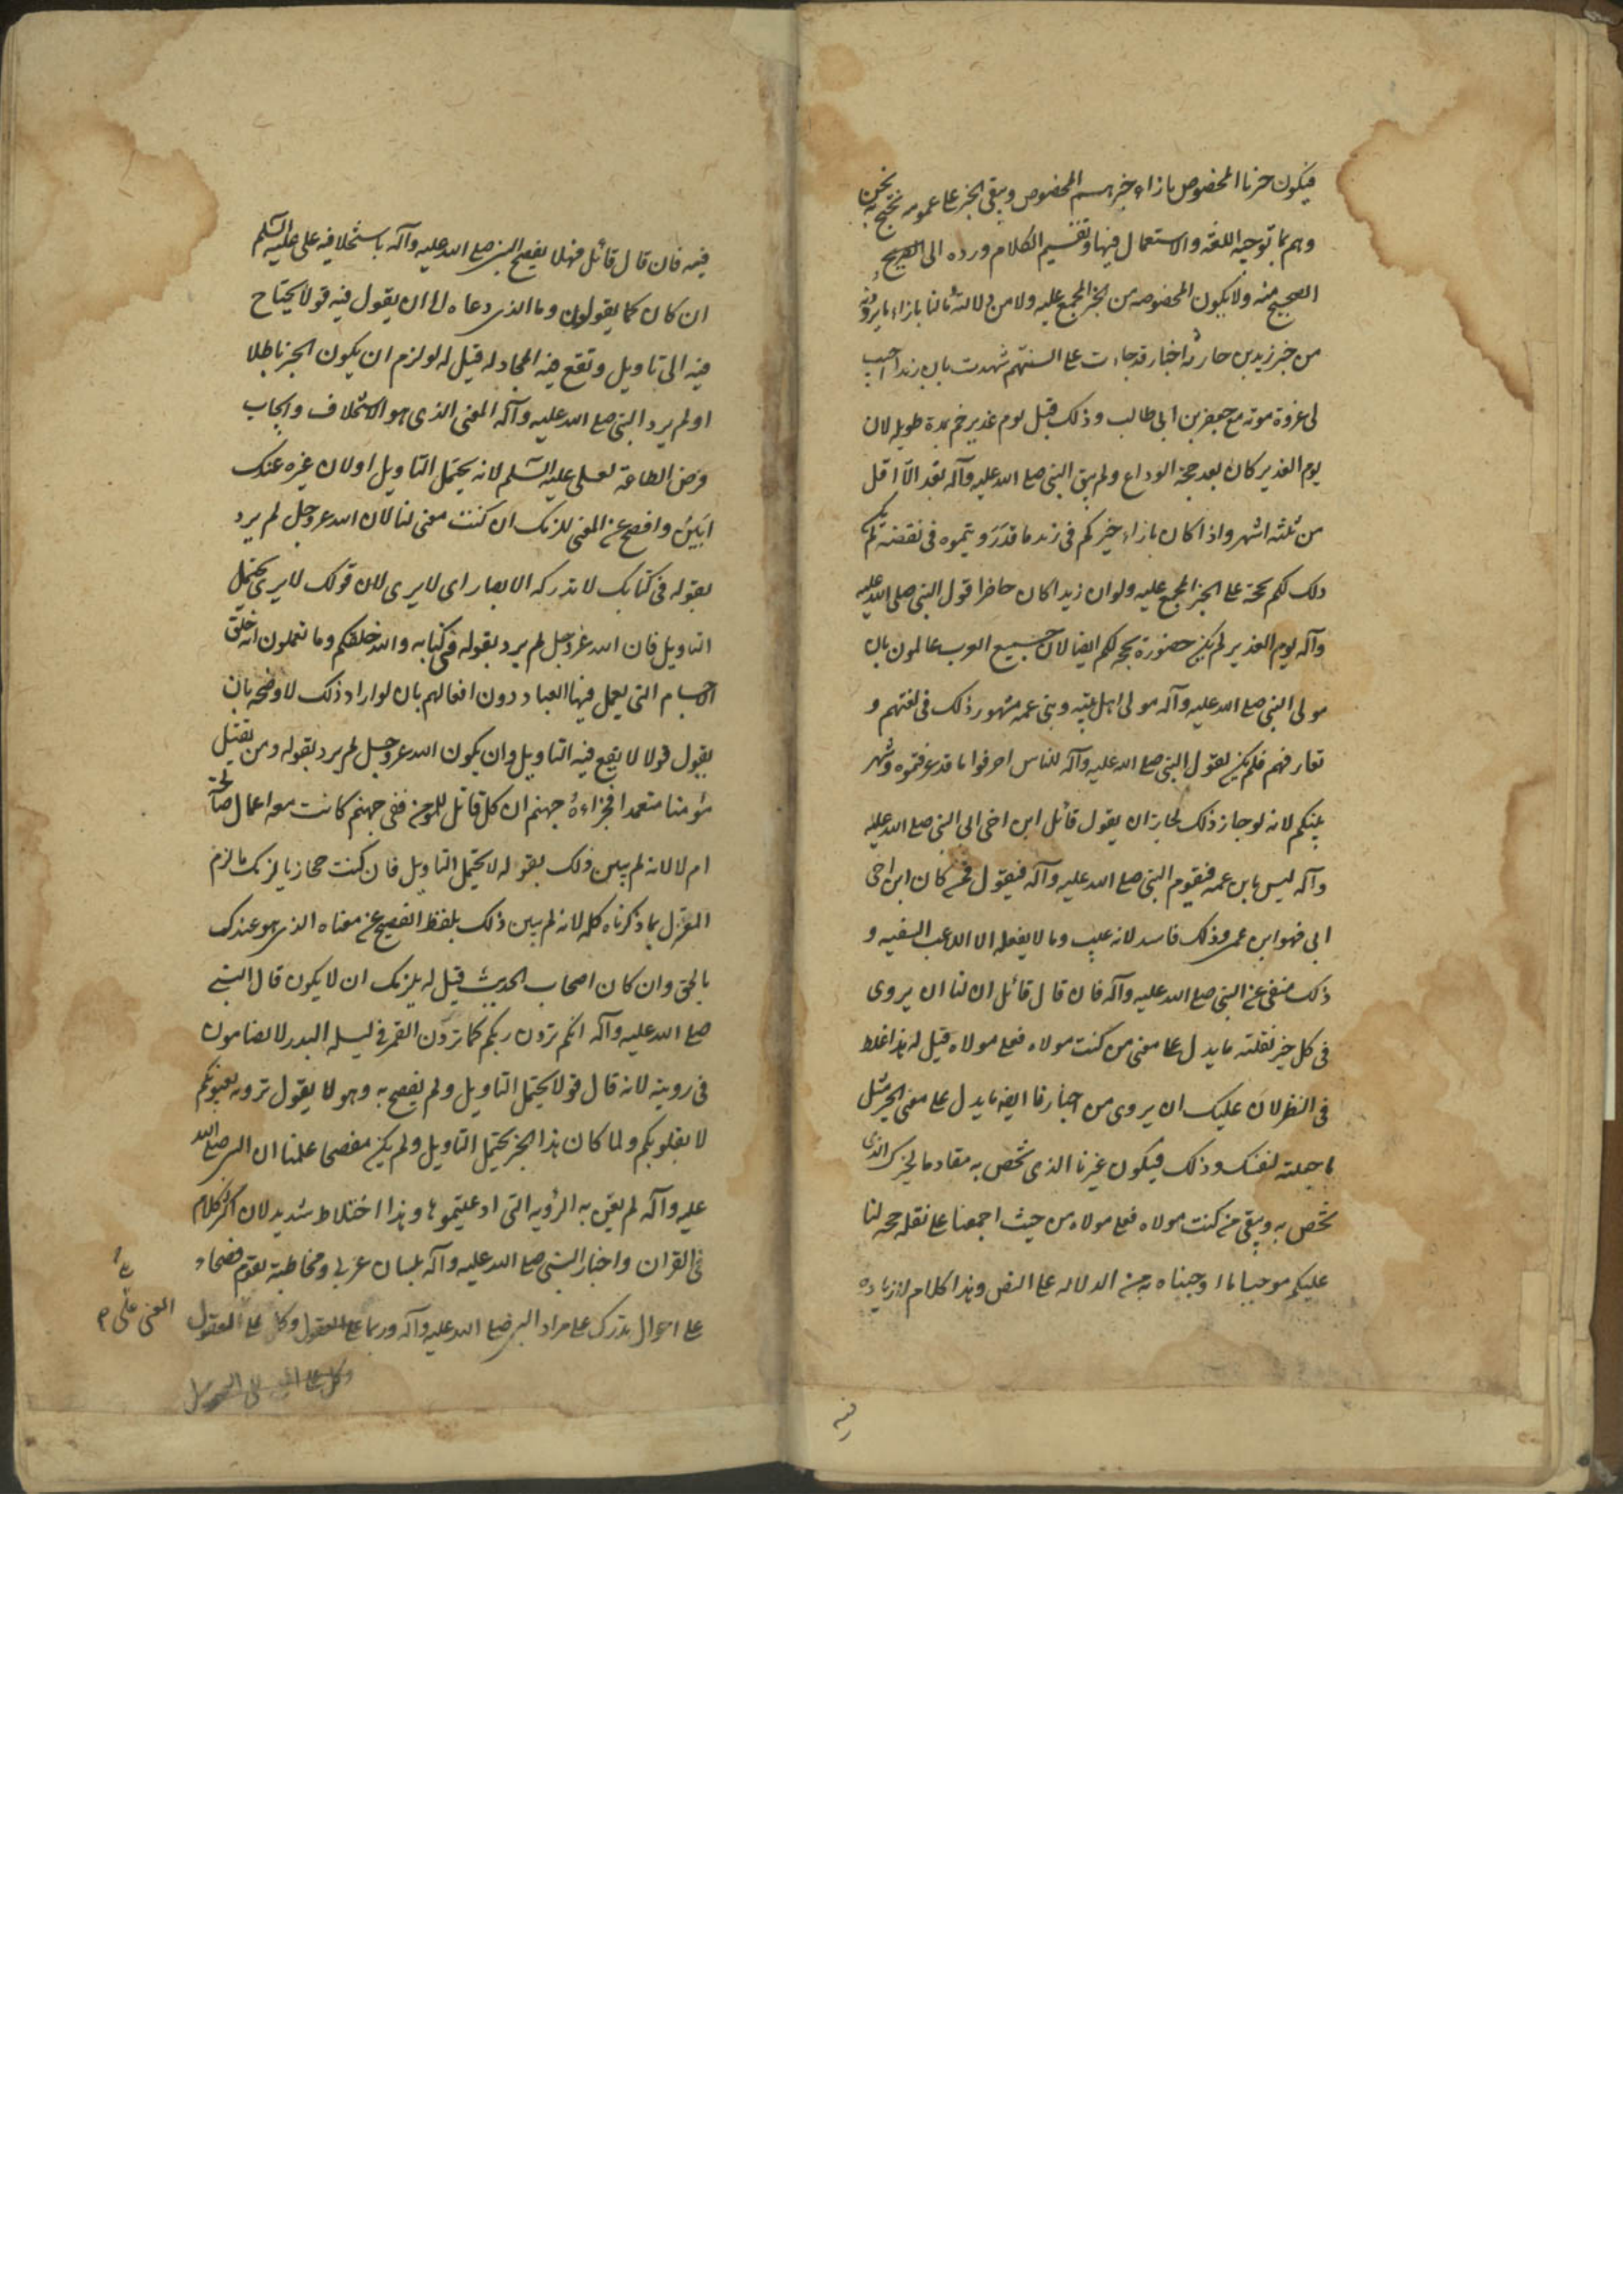 فيكون خبرنا المخصوص بازاء خبرهم المخصوص ويبقى الخبر على عمومه نحتج به نحن
وهم بما توجبه اللغة والاستعمال فيها وتقسيم الكلام ورده الى الصحيح
الصحيح منه ولا يكون لخصومنا من الخبر المجمع عليه ولا من دلالته ما لنا بازاء ما يروونه
من خبر زيد بن حارثه اخبار قد جاءت على السنتهم شهدت بان زيدا اصيب
فى غزوة موته مع جعفر بن ابى طالب وذلك قبل يوم غدير خم بمدة طويله لان
يوم الغدير كان بعد حجة الوداع ولم يبق النبى صلى الله عليه وآله بعد الا اقل
من ثلثه اشهر واذا كان بازاء خبركم فى زيد ما قد رويتموه فى نقضه لم يكن
ذلك لكم بحجة على الخبر المجمع عليه ولو ان زيدا كان حاضرا قول النبى صلى الله عليه
وآله يوم الغدير لم يكن حضوره بحجة لكم ايضا لان جميع العرب عالمون بان
مولى النبى صلى الله عليه وآله مولى اهل بيته وبنى عمه مشهور ذلك فى لغتهم و
تعارفهم فلم يكن لقول النبى صلى الله عليه وآله للناس اعرفوا ما قد عرفتموه وشهر
بينكم لانه لو جاز ذلك لجاز ان يقول قائل ابن اخى ابى النبى صلى الله عليه
وآله ليس بابن عمه فيقوم النبى صلى الله عليه وآله فيقول فمن كان ابن اخى
ابى فهو ابن عمى وذلك فاسد لانه عيب وما لا يفعله الا اللاعب السفيه و
ذلك منفى عن النبى صلى الله عليه وآله فان قال قائل ان لنا ان يروى
فى كل خبر نقلته ما يدل على معنى من كنت مولاه فعلى مولاه قيل له هذا غلط
فى النظر لان عليك ان يروى من اخبارنا ايضا ما يدل على معنى الخبر مثل
ما جعلته لنفسك وذلك فيكون خبرنا الذى نختص به مقاوما لخبرك الذى
تختص به ويبقى من كنت مولاه فعلى مولاه من حيث اجمعنا على نقله حجه لنا
عليكم موجبا ما اوجبناه به من الدلاله على النص وهذا كلام لا زياده
فيه
فيه فان قال قائل فهلا يفصح النبى صلى الله عليه وآله باستخلافه على عليه السلم
ان كان كما يقولون وما الذى دعاه الى ان يقول فيه قولا يحتاح
فيه الى تاويل وتقع فيه المجادله قيل له لو لزم ان يكون الخبر باطلا
او لم يرد النبى صلى الله عليه وآله المعنى الذى هو الاستخلاف وايجاب
فرض الطاعة لعلى عليه السلم لانه يحتمل التاويل او لان غيره عندك
ابين وافصح عن المعنى للزمك ان كنت معتزلنا لان الله عز وجل لم يرد
بقوله فى كتابك لا تدركه الابصار اى لا يرى لان قولك لا يرى يحتمل
التاويل فان الله عز وجل لم يرد بقوله فى كتابه والله خلقكم وما تعملون انه خلق
الاجسام التى يعمل فيها العباد دون افعالهم بان لو اراد ذلك لاوضحه بان
يقول قولا لا يقع فيه التاويل وان يكون الله عز وجل لم يرد بقوله ومن يقتل
مؤمنا متعمدا فجزاءه جهنم ان كل قاتل للمومن ففى جهنم كانت معه اعمال صالحة
ام لا لانه لم يبين ذلك بقوله لا يحتمل التاويل فان كنت حجازيا لزمك ما لزم
المعتزل بما ذكرناه كله لانه لم يبين ذلك بلفظ افصح عن معناه الذى هو عندك
بالحق وان كان اصحاب الحديث قيل له يلزمك ان لا يكون قال النبى
صلى الله عليه وآله انكم ترون ربكم كما ترون القمر فى ليله البدر لا تضامون
فى رويته لانه قال قولا يحتمل التاويل ولم يفصح به وهو لا يقول ترونه بعيونكم
لا بقلوبكم ولما كان هذا الخبر يحتمل التاويل ولم يكن مفصحا علمنا ان النبى صلى الله
عليه وآله لم يعن به الرؤيه التى ادعيتموها وهذا اختلاط شديد لان اكثر كلام
فى القران واخبار النبى صلى الله عليه وآله بلسان عربى ومخاطبة لقوم فصحاء
على احوال تدرك على مراد النبى صلى الله عليه وآله وربما على العقول وكل على العقول